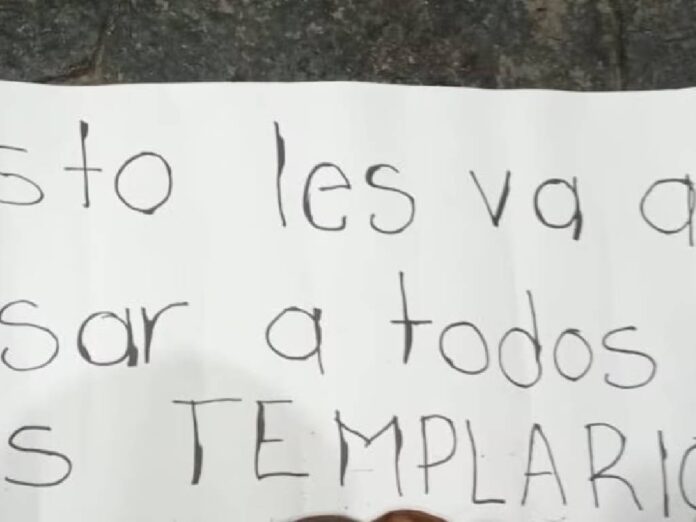 sto les va a
sar a todos
s TEMPLARIO